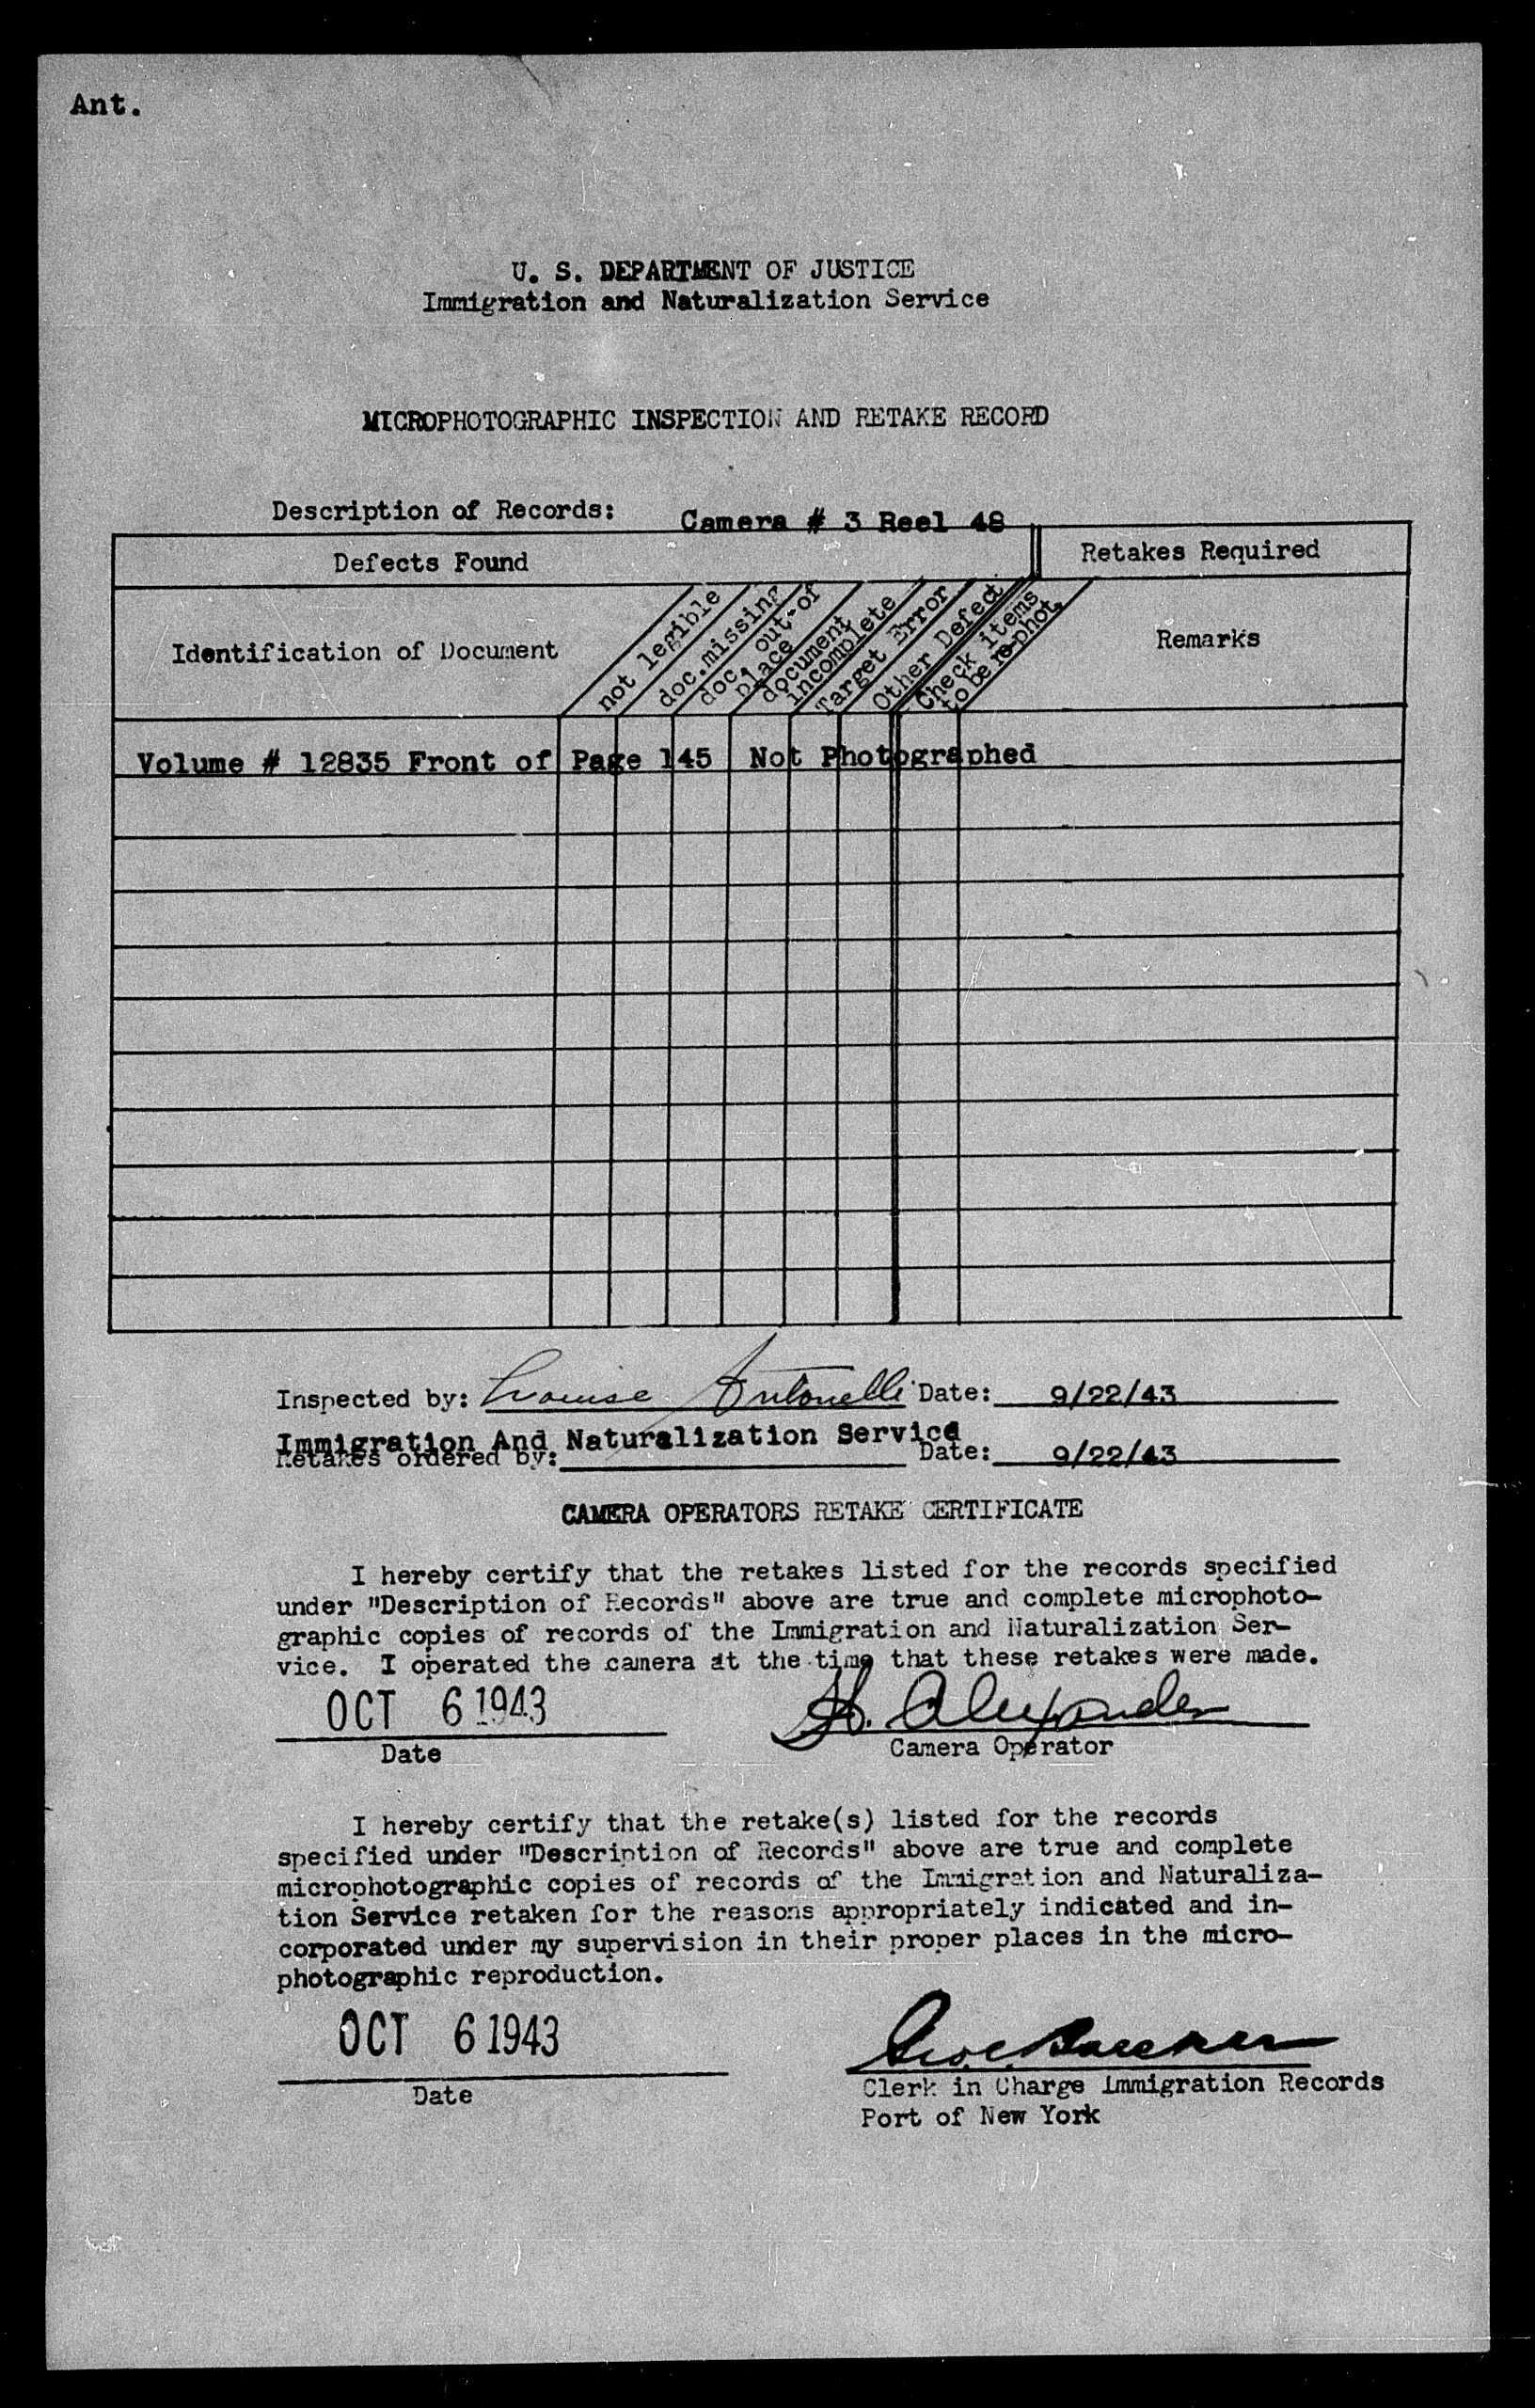 Ant.
U. S. DEPARTMENT OF JUSTICE
Immigration and Naturalization Service
MICROPHOTOGRAPHIC INSPECTION AND RETAKE RECORD
Description of Records: Camera # 3 Reel 48
Defects Found
Retakes Required
Identification of Document
not legible
doc.missing
doc. out-of
place
document
incomplete
Target Error
Other Defect
Check items
to be re-phot.
Remarks
Volume # 12835 Front of Page 145 Not Photographed
Inspected by: Louise Antonelli Date: 9/22/43
Immigration And Naturalization Service
Retakes ordered by: Date: 9/22/43
CAMERA OPERATORS RETAKE CERTIFICATE
I hereby certify that the retakes listed for the records specified
under "Description of Records" above are true and complete microphoto-
graphic copies of records of the Immigration and Naturalization Ser-
vice. I operated the camera at the time that these retakes were made.
OCT 6 1943 H. Alexander
Date Camera Operator
I hereby certify that the retake(s) listed for the records
specified under "Description of Records" above are true and complete
microphotographic copies of records of the Immigration and Naturaliza-
tion Service retaken for the reasons appropriately indicated and in-
corporated under my supervision in their proper places in the micro-
photographic reproduction.
OCT 6 1943
Date
Clerk in Charge Immigration Records
Port of New York